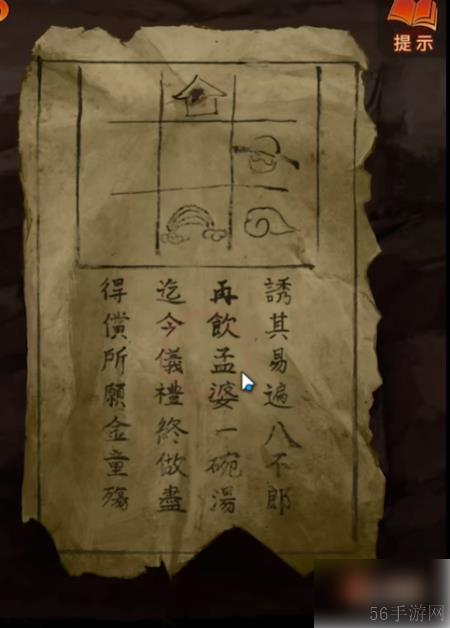 提示
誘其易遍八不郎
再飲孟婆一碗湯
迄今儀禮終做盡
得償所願金童殤
56手游网